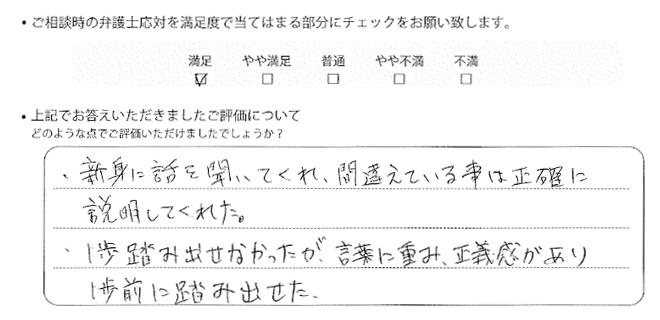 ・ご相談時の弁護士応対を満足度で当てはまる部分にチェックをお願い致します。
満足 やや満足 普通 やや不満 不満
☑ □ □ □ □
・上記でお答えいただきましたご評価について
どのような点でご評価いただけましたでしょうか？
・新身に話を聞いてくれ、間違えている事は正確に
説明してくれた。
・1歩踏み出せなかったが、言葉に重み、正義感があり
1歩前に踏み出せた。